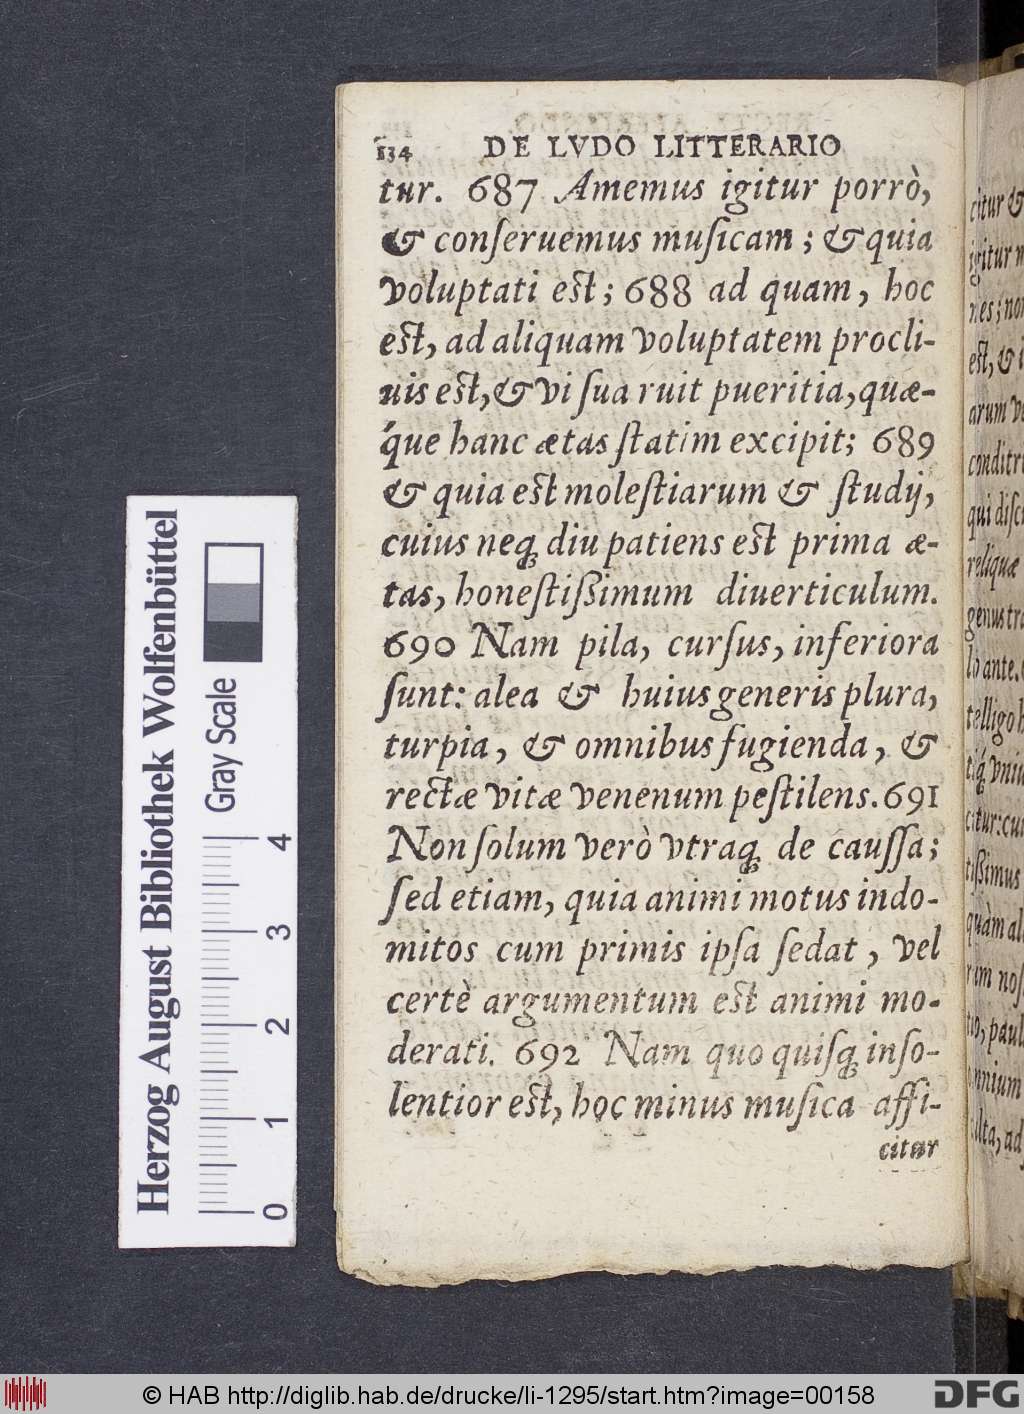 134 DE LVDO LITTERARIO
tur. 687 Amemus igitur porrò,
& conſeruemus muſicam ; & quia
voluptati est ; 688 ad quam, hoc
est, ad aliquam voluptatem procli-
uis est, & vi ſua ruit pueritia, quæ-
q́ue hanc ætas ſtatim excipit; 689
& quia est moleſtiarum & ſtudij,
cuius neq; diu patiens est prima æ-
tas, honeſtiſſimum diuerticulum.
690 Nam pila, curſus, inferiora
ſunt: alea & huius generis plura,
turpia, & omnibus fugienda, &
rectæ vitæ venenum peſtilens. 691
Non ſolum verò vtraq; de cauſſa;
ſed etiam, quia animi motus indo-
mitos cum primis ipſa ſedat, vel
certè argumentum est animi mo-
derati. 692 Nam quo quiſq; inſo-
lentior est, hoc minus muſica affi-
citur
citur &
est, &
arum
qui diſc
reliquæ
lo ante.
telligo
vniu
citur: cu
tiſſimus
quàm al
omnium
ulta, ad
Herzog August Bibliothek Wolfenbüttel
Gray Scale
0 1 2 3 4
© HAB http://diglib.hab.de/drucke/li-1295/start.htm?image=00158
DFG